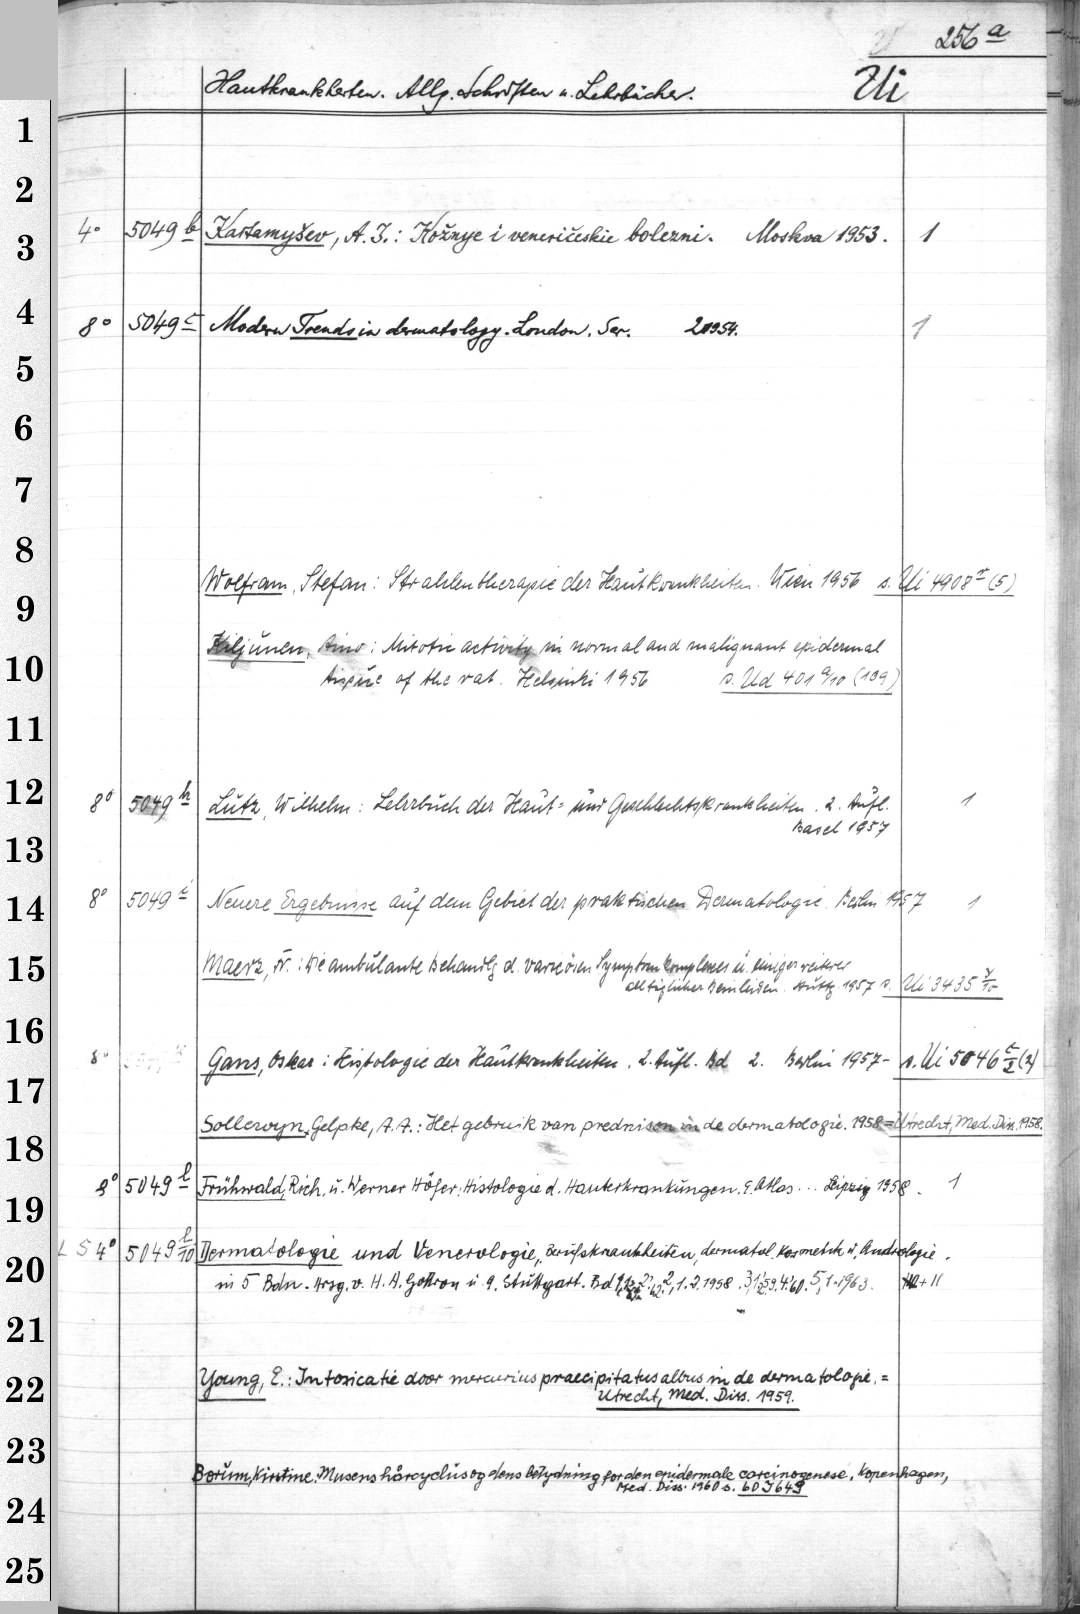 256 a
Hautkrankheiten. Allg. Schriften u. Lehrbücher. Ui
1
2
3
4
5
6
7
8
9
10
11
12
13
14
15
16
17
18
19
20
21
22
23
24
25
4° 5049 b Kartamyšev, A. I.: Kožnye i veneričeskie bolezni. Moskva 1953. 1
8° 5049 c Modern Trends in dermatology. London. Ser. 2 1954. 1
Wolfram, Stefan: Strahlentherapie der Hautkrankheiten. Wien 1956 s. Ui 4908 (5)
Kiljunen, Aino: Mitotic activity in normal and malignant epidermal
tissue of the rat. Helsinki 1956 s. Ud 401 a/10 (109)
8° 5049 h Lutz, Wilhelm: Lehrbuch der Haut- und Geschlechtskrankheiten. 2. Aufl. 1
Basel 1957
8° 5049 i Neuere Ergebnisse auf dem Gebiet der praktischen Dermatologie. Berlin 1957 1
Maerz, : Die ambulante Behandlg d. varicösen Symptomkomplexes u. einiger weiterer
alltäglicher Beinleiden. Stuttg. 1957 s. Ui 3435 y/10
8° Gans, Oskar: Histologie der Hautkrankheiten. 2. Aufl. Bd 2. Berlin 1957- s. Ui 5046 (2)
Sollewyn Gelpke, A. A.: Het gebruik van prednison in de dermatologie. 1958 = Utrecht, Med. Diss. 1958.
8° 5049 l Frühwald, Rich. u. Werner Höfer: Histologie d. Hauterkrankungen. E. Atlas... Leipzig 1958. 1
L S 4° 5049 l/10 Dermatologie und Venerologie, Berufskrankheiten, dermatol. Kosmetik u. Andrologie.
in 5 Bdn. Hrsg. v. H. A. Gottron u. a. Stuttgart. Bd 2, 1.2. 1958. 3,1 '59. 4. '60. 5, 1. 1963. + 11
Young, E.: Intoxicatie door mercurius praecipitatus albus in de dermatologie. =
Utrecht, Med. Diss. 1959.
Borum, Kirstine: Musens hårcyclus og dens betydning for den epidermale carcinogenese, Kopenhagen,
Med. Diss. 1960 s. 60 J 649